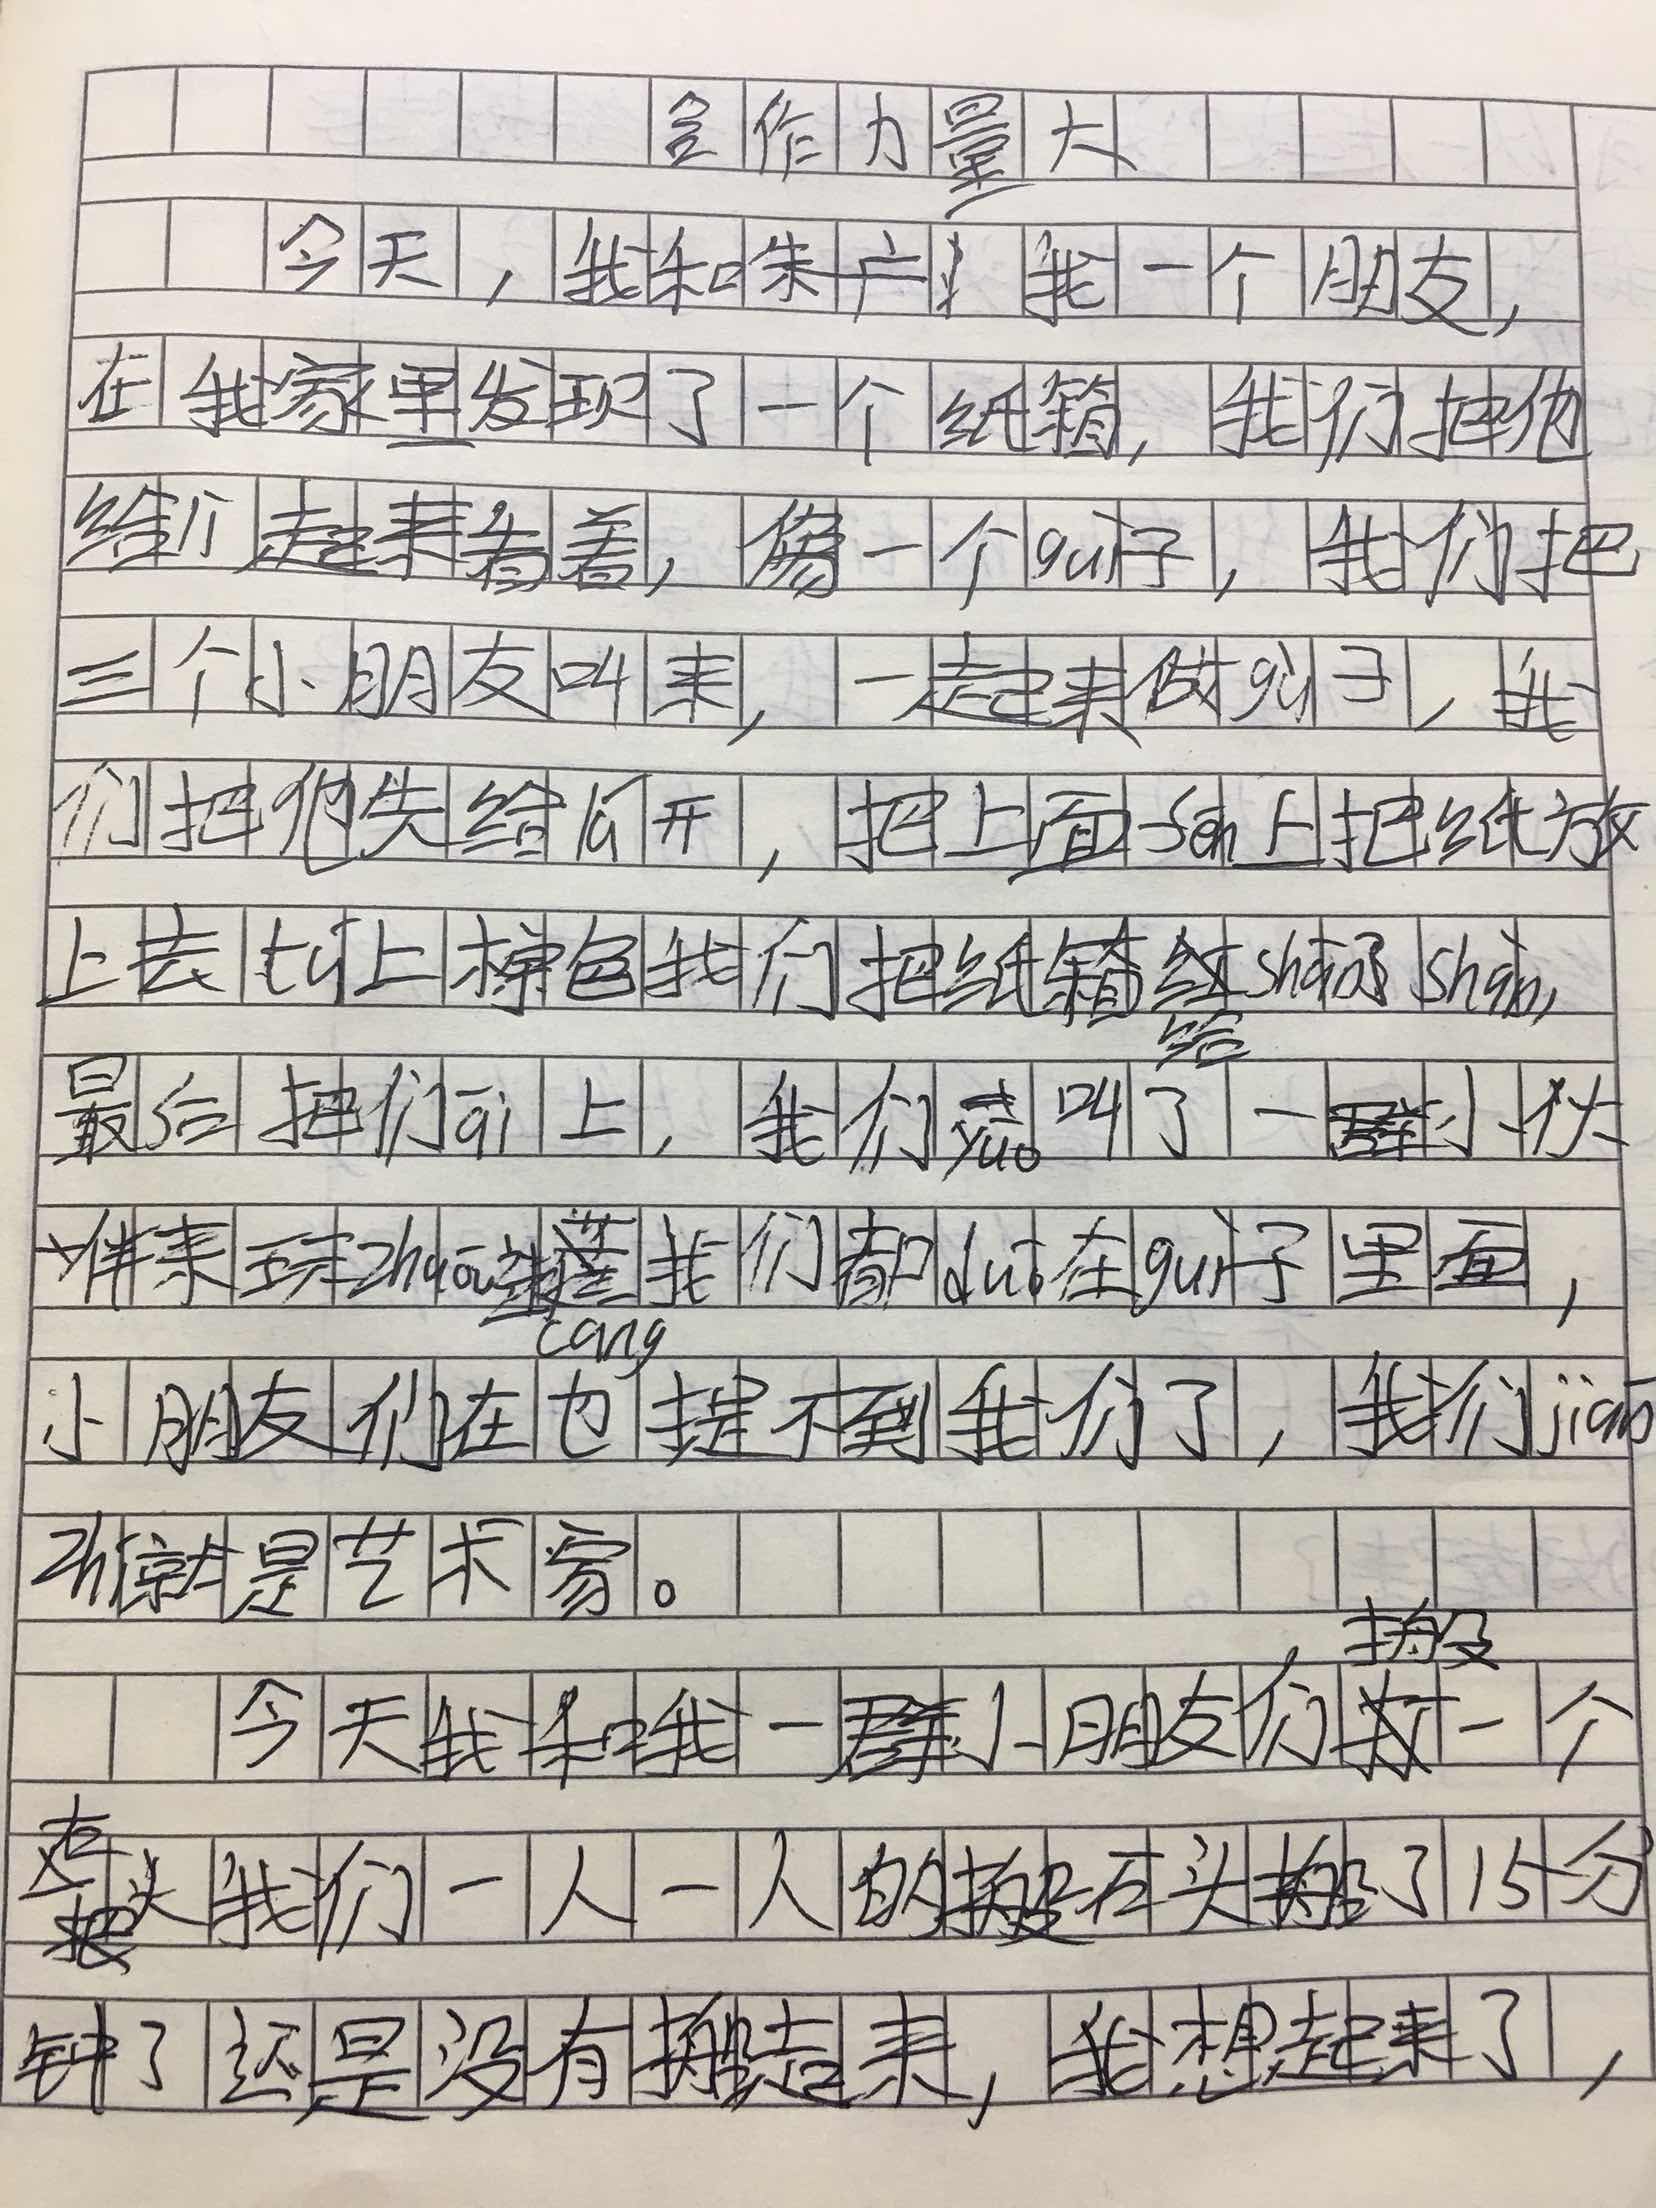 合作力量大
今天，我和朱户 我一个朋友，
在我家里发现了一个纸箱，我们把他
给 起来看着，像一个gui子，我们把
三个小朋友叫来，一起来做gui子，我
们把他先给la开，把上面 上把纸放
上去tú上棕色我们把纸箱给shān了shān，
最后把们āi上，我们yuo叫了一群小伙
伴来玩zhuocang我们都duo在gui子里面，
小朋友们在也提不到我们了，我们jiǎn
zhi就是艺术家。
今天我和我一群小朋友们，搬一个
石头我们一人一人的搬石头搬了15分
钟了还是没有搬起来，我想起来了，